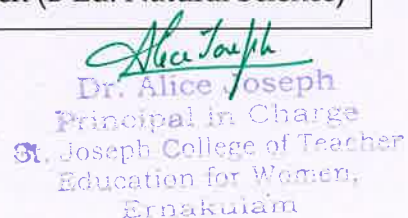 (B Ed. Natural Science)
Alice Joseph
Dr. Alice Joseph
Principal in Charge
St. Joseph College of Teacher
Education for Women,
Ernakulam